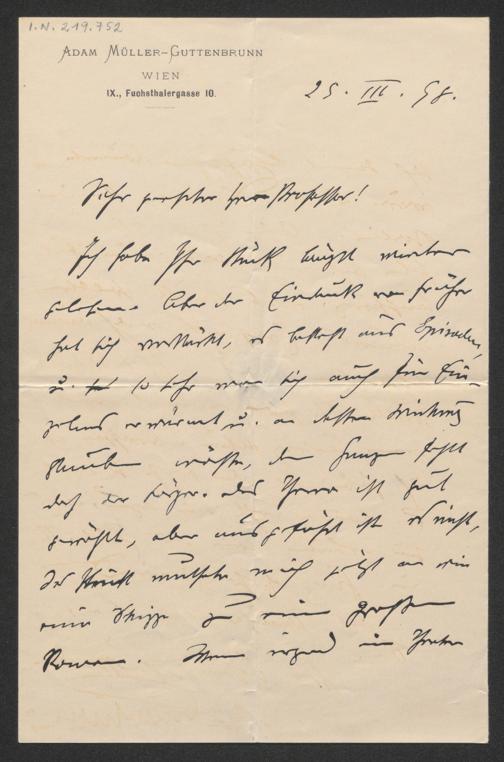 I.N. 219.752
ADAM MÜLLER-GUTTENBRUNN
WIEN
IX., Fuchsthalergasse 10.
25. III. 98.
Sehr geehrter Herr Professor!
Ich habe Ihr Stück längst wieder
gelesen. Aber der Eindruck von früher
hat sich verstärkt, es besteht aus Episoden,
u. so sehr man sich auch für Ein-
zelnes erwärmt u. an dessen Wirkung
glauben möchte, dem Ganzen fehlt
doch der Körper. Das Thema ist gut
gewählt, aber ausgeführt ist es nicht,
das Stück muthete mich jetzt an wie
eine Skizze zu einem großen
Roman. Wenn irgend ein